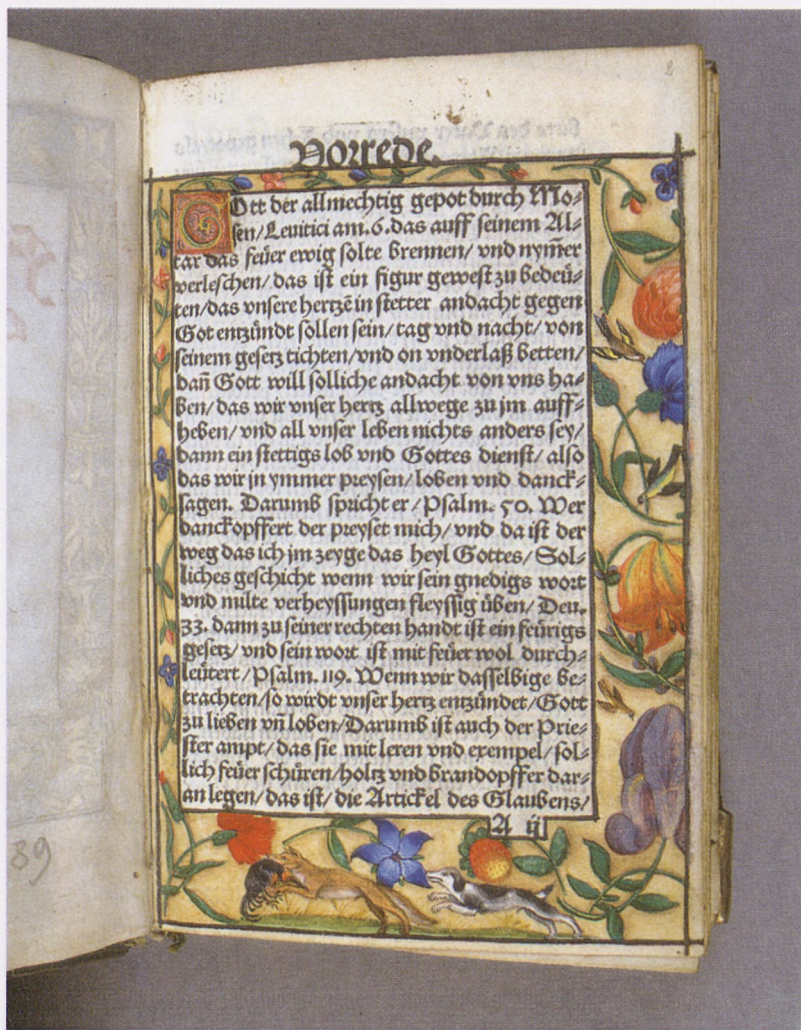 2
Vorrede.
GOtt der allmechtig gepot durch Mo⸗
sen/Leuitici am.6.das auff seinem Al⸗
tar das feüer ewig solte brennen/ vnd nym̄er
verleschen/das ist ein figur gewest zu bedeü⸗
ten/das vnsere hertzē in stetter andacht gegen
Got entzündt sollen sein/tag vnd nacht/ von
seinem gesetz tichten/vnd on vnderlaß betten/
dañ Gott will solliche andacht von vns ha⸗
ben/das wir vnser hertz allwege zu jm auff⸗
heben/ vnd all vnser leben nichts anders sey/
dann ein stettigs lob vnd Gottes dienst/ also
das wir jn ymmer preysen/loben vnd danck⸗
sagen. Darumb spricht er/Psalm. 50. Wer
danckopffert der preyset mich/vnd da ist der
weg das ich jm zeyge das heyl Gottes/ Sol⸗
liches geschicht wenn wir sein gnedigs wort
vnd milte verheyssungen fleyssig üben/ Deu.
33. dann zu seiner rechten handt ist ein feürigs
gesetz/vnd sein wort ist mit feüer wol durch⸗
leütert/Psalm. 119. Wenn wir dasselbige be⸗
trachten/so wirdt vnser hertz entzündet/Gott
zu lieben vñ loben/Darumb ist auch der Prie⸗
ster ampt/das sie mit leren vnd exempel/sol⸗
lich feüer schüren/holtz vnd brandopffer dar⸗
an legen/das ist/die Artickel des Glaubens/
A ij
89